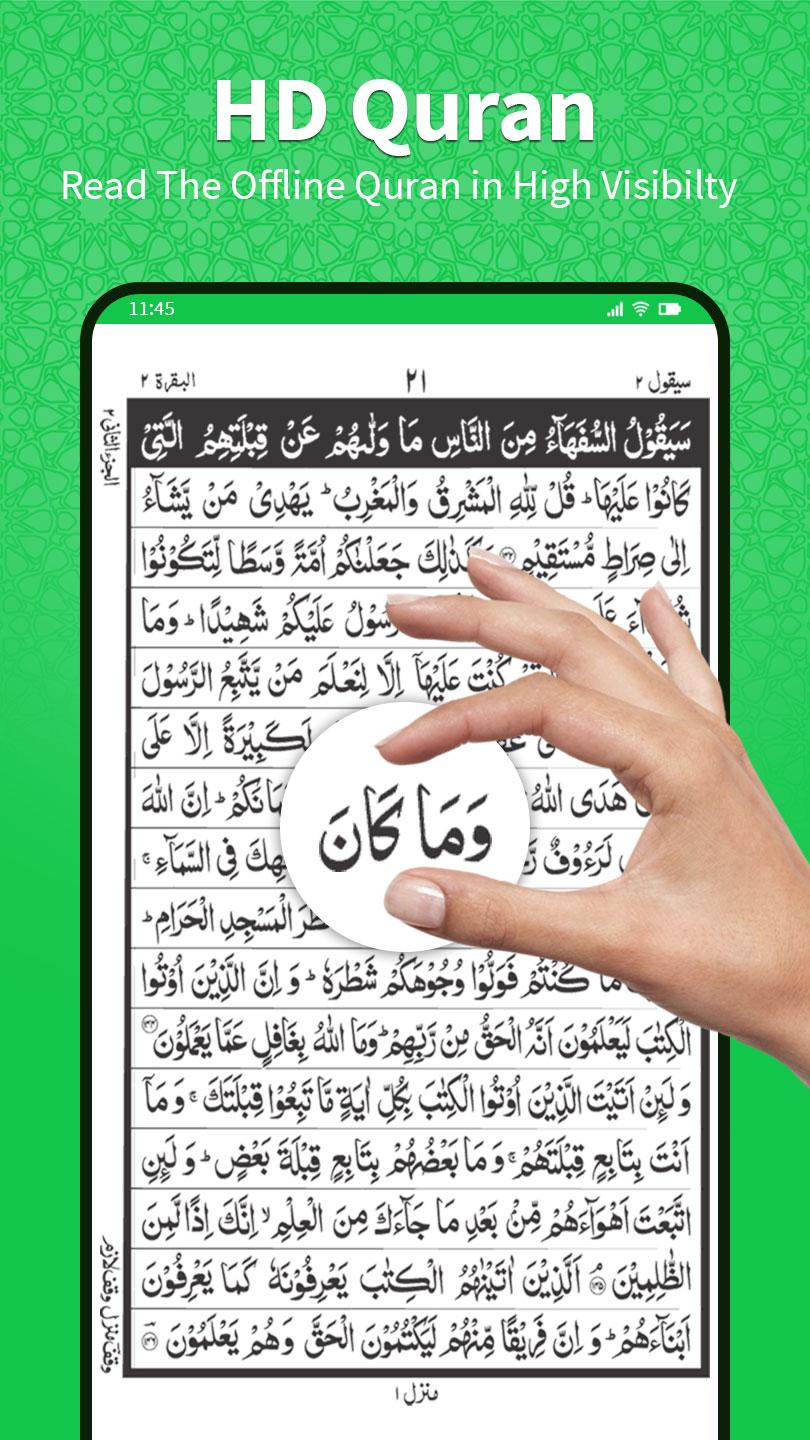 HD Quran
Read The Offline Quran in High Visibilty
11:45
سيقول ٢
٢١
البقرة ٢
الجزء الثاني ٢
سَيَقُوْلُ السُّفَهَآءُ مِنَ النَّاسِ مَا وَلّٰىهُمْ عَنْ قِبْلَتِهِمُ الَّتِيْ
كَانُوْا عَلَيْهَاؕ قُلْ لِّلّٰهِ الْمَشْرِقُ وَالْمَغْرِبُؕ يَهْدِيْ مَنْ يَّشَآءُ
اِلٰى صِرَاطٍ مُّسْتَقِيْمٍ ١٤٢ وَكَذٰلِكَ جَعَلْنٰكُمْ اُمَّةً وَّسَطًا لِّتَكُوْنُوْا
عَلَيْكُمْ شَهِيْدًاؕ وَمَا
كُنْتَ عَلَيْهَآ اِلَّا لِنَعْلَمَ مَنْ يَّتَّبِعُ الرَّسُوْلَ
لَكَبِيْرَةً اِلَّا عَلَى
هَدَى اللّٰهُ اِنَّ اللّٰهَ
وَمَا كَانَ
لَرَءُوْفٌ فِي السَّمَآءِۚ
الْمَسْجِدِ الْحَرَامِؕ
مَا كُنْتُمْ فَوَلُّوْا وُجُوْهَكُمْ شَطْرَهٗؕ وَ اِنَّ الَّذِيْنَ اُوْتُوا
الْكِتٰبَ لَيَعْلَمُوْنَ اَنَّهُ الْحَقُّ مِنْ رَّبِّهِمْؕ وَمَا اللّٰهُ بِغَافِلٍ عَمَّا يَعْمَلُوْنَ
وَ لَىِٕنْ اَتَيْتَ الَّذِيْنَ اُوْتُوا الْكِتٰبَ بِكُلِّ اٰيَةٍ مَّا تَبِعُوْا قِبْلَتَكَۚ وَ مَآ
اَنْتَ بِتَابِعٍ قِبْلَتَهُمْۚ وَ مَا بَعْضُهُمْ بِتَابِعٍ قِبْلَةَ بَعْضٍؕ وَ لَىِٕنِ
اتَّبَعْتَ اَهْوَآءَهُمْ مِّنْۢ بَعْدِ مَا جَآءَكَ مِنَ الْعِلْمِۙ اِنَّكَ اِذًا لَّمِنَ
الظّٰلِمِيْنَ ١٤٥ اَلَّذِيْنَ اٰتَيْنٰهُمُ الْكِتٰبَ يَعْرِفُوْنَهٗ كَمَا يَعْرِفُوْنَ
اَبْنَآءَهُمْؕ وَ اِنَّ فَرِيْقًا مِّنْهُمْ لَيَكْتُمُوْنَ الْحَقَّ وَ هُمْ يَعْلَمُوْنَ ١٤٦
وقف منزل وقف لازم
منزل ١